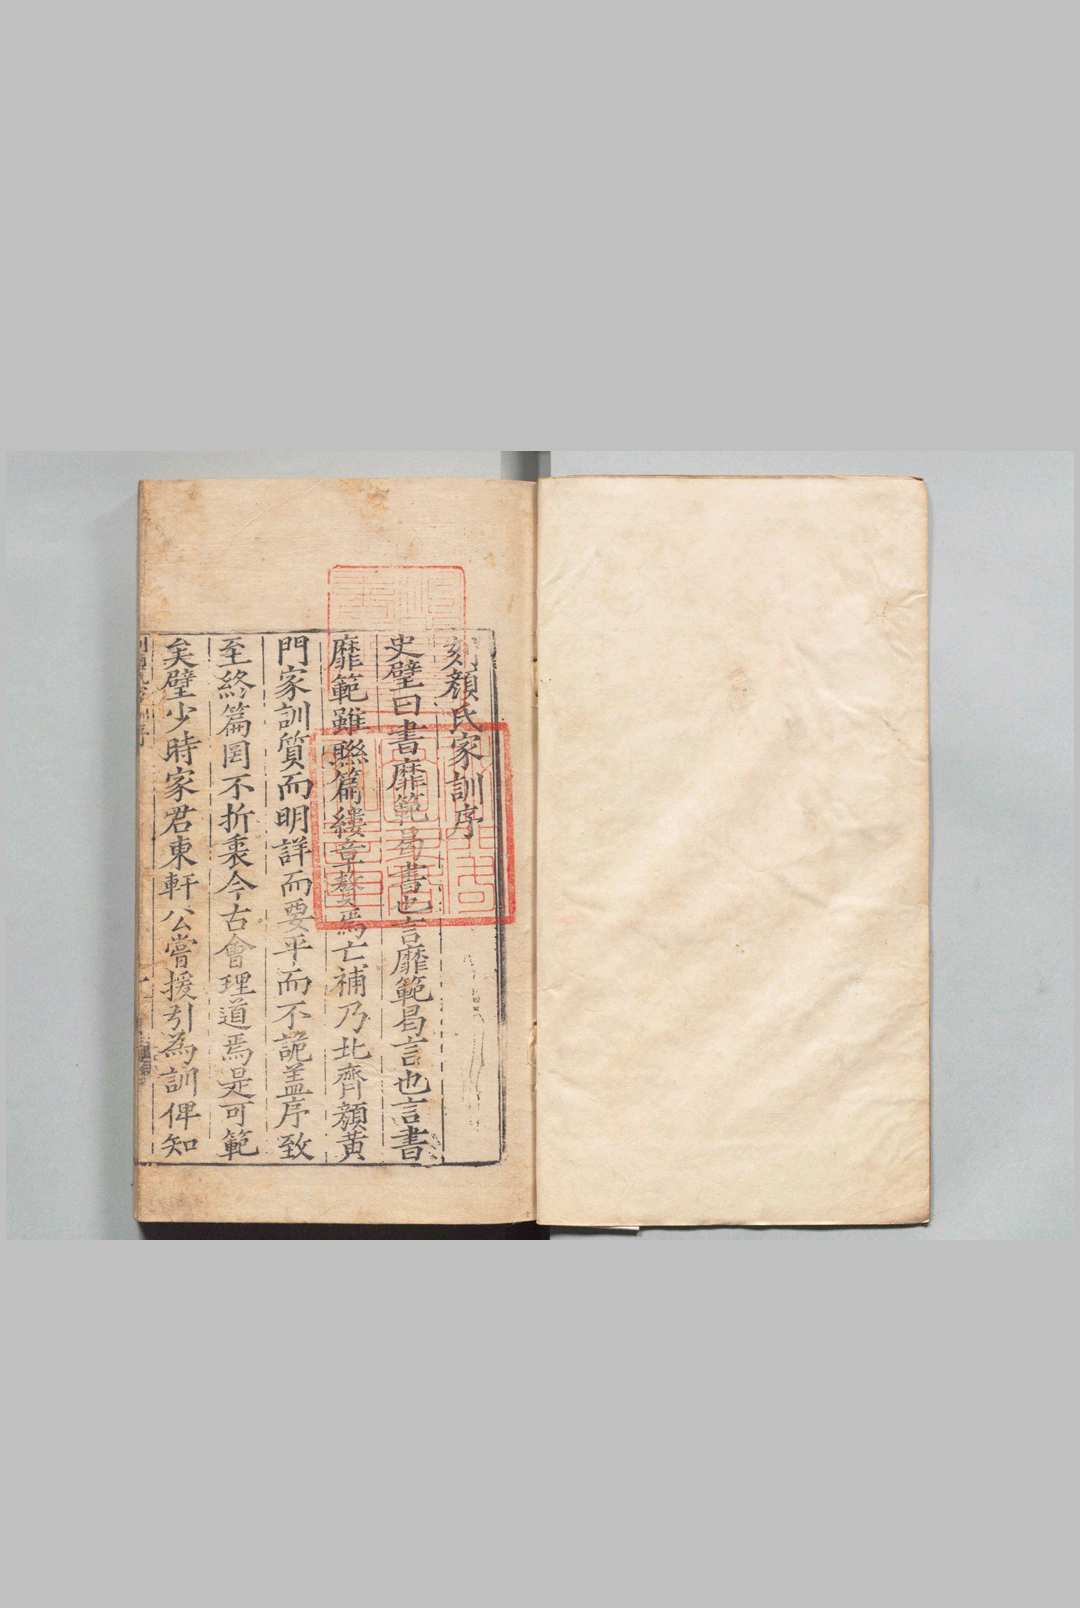 刻顏氏家訓序
史璧曰書靡範曷書也言靡範曷言也言書
靡範雖聮篇縷章贅焉亡補乃北齊顏黃
門家訓質而明詳而要平而不詭葢序致
至終篇罔不折衷今古會理道焉是可範
矣璧少時家君東軒公嘗援引為訓俾知